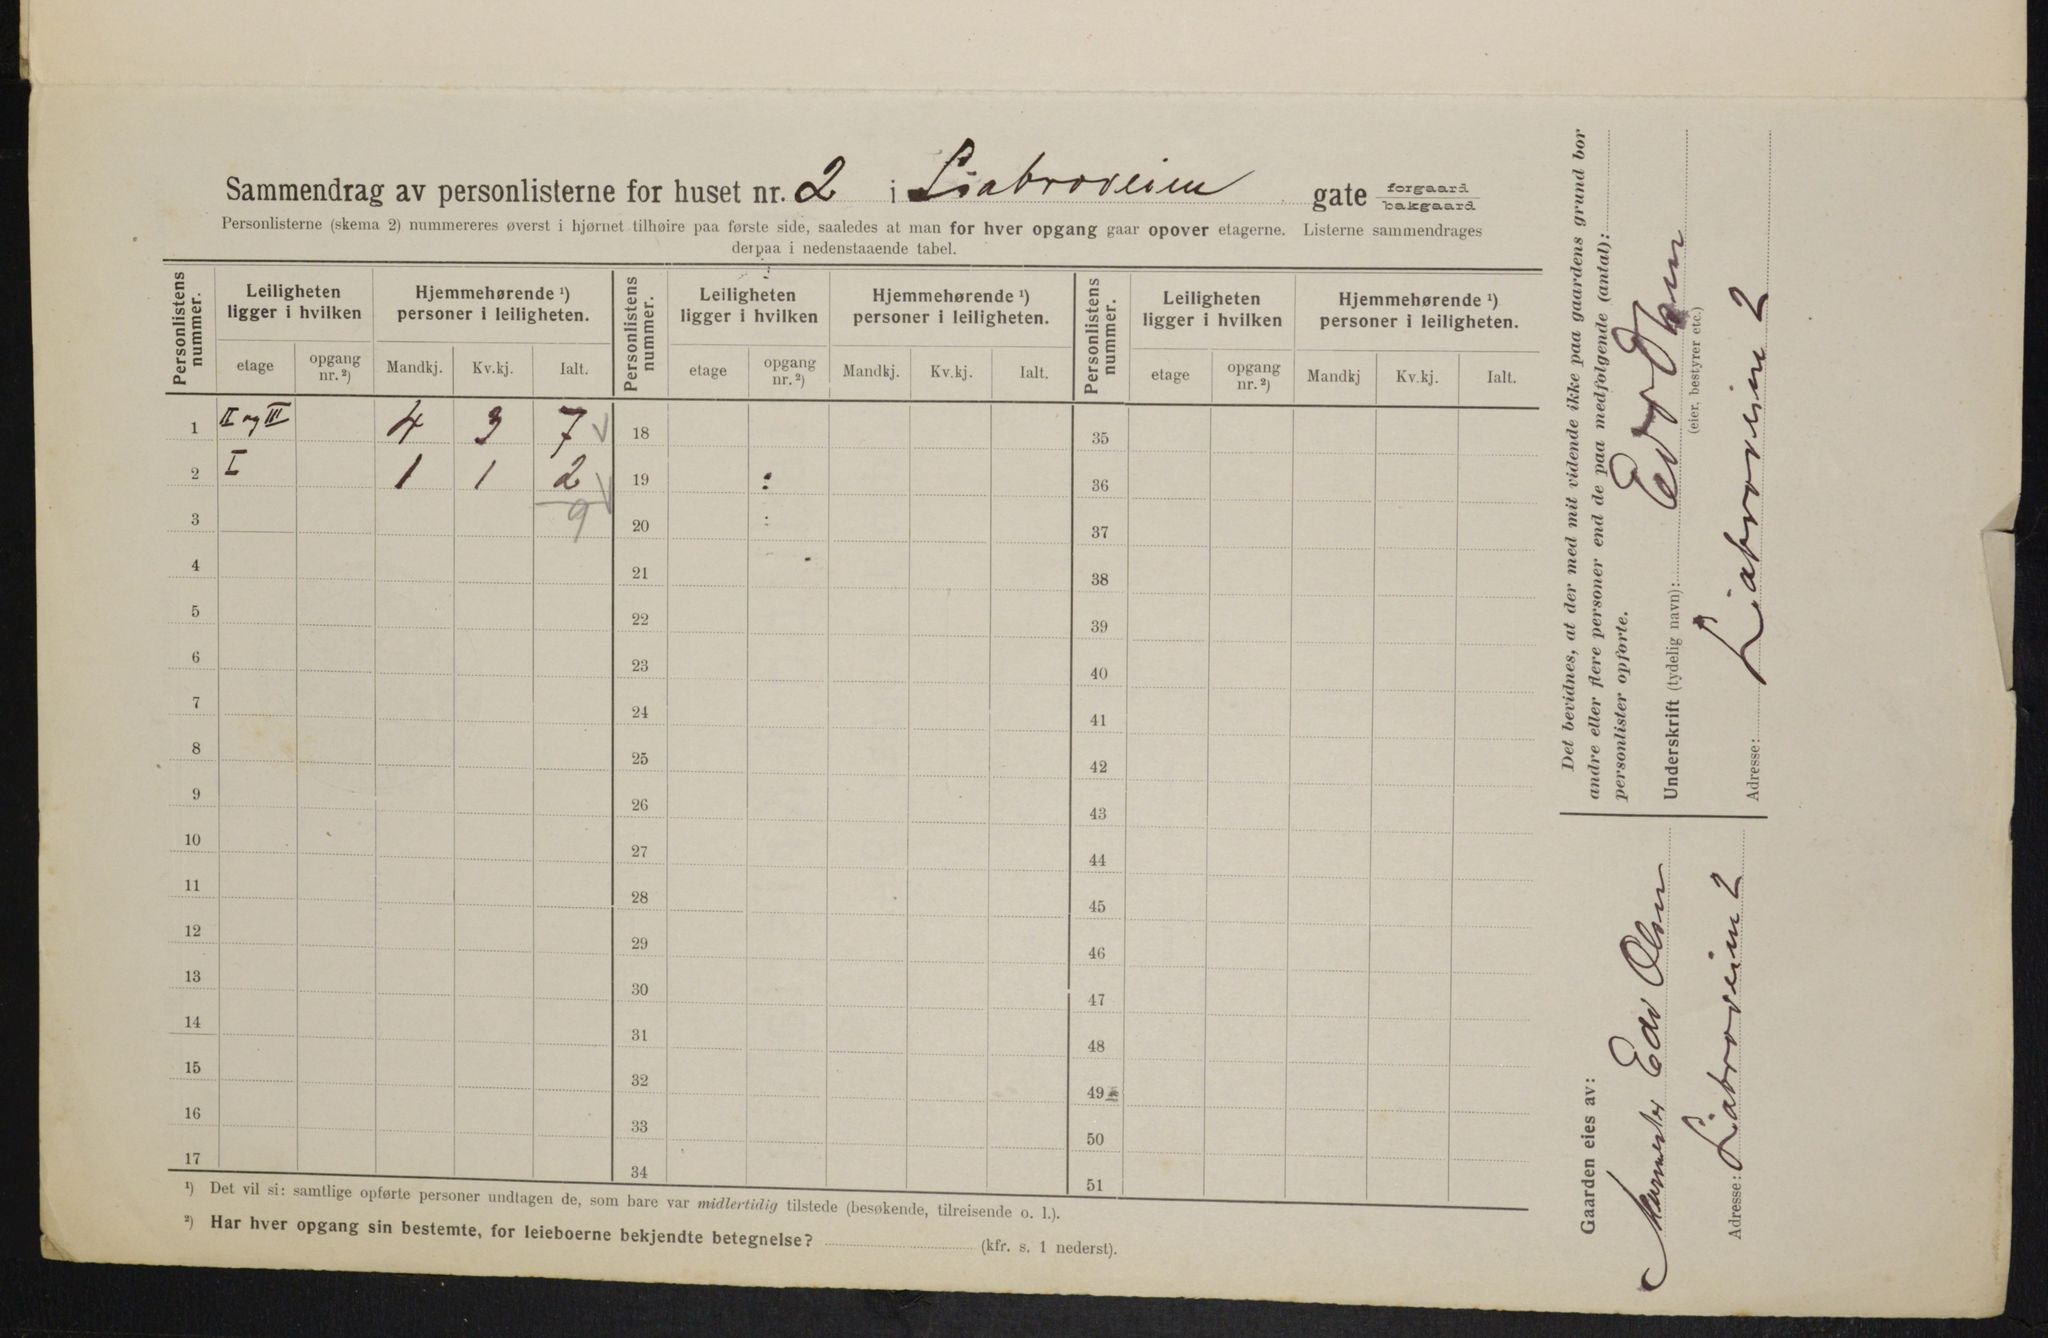 Sammendrag av personlisterne for huset nr. 2 i Liabroveien gate forgaard bakgaard
Personlisterne (skema 2) nummereres øverst i hjørnet tilhøire paa første side, saaledes at man for hver opgang gaar opover etagerne. Listerne sammendrages
derpaa i nedenstaaende tabel.
Personlistens nummer. Leiligheten ligger i hvilken Hjemmehørende ¹) personer i leiligheten. Personlistens nummer. Leiligheten ligger i hvilken Hjemmehørende ¹) personer i leiligheten. Personlistens nummer. Leiligheten ligger i hvilken Hjemmehørende ¹) personer i leiligheten.
etage opgang nr. ²) Mandkj. Kv.kj. Ialt. etage opgang nr. ²) Mandkj. Kv.kj. Ialt. etage opgang nr. ²) Mandkj Kv.kj. Ialt.
1 II og III 4 3 7 18 35
2 I 1 1 2 19 36
3 9 20 37
4 21 38
5 22 39
6 23 40
7 24 41
8 25 42
9 26 43
10 27 44
11 28 45
12 29 46
13 30 47
14 31 48
15 32 49
16 33 50
17 34 51
¹) Det vil si: samtlige opførte personer undtagen de, som bare var midlertidig tilstede (besøkende, tilreisende o. l.).
²) Har hver opgang sin bestemte, for leieboerne bekjendte betegnelse? (kfr. s. 1 nederst).
Det bevidnes, at der med mit vidende ikke paa gaardens grund bor
andre eller flere personer end de paa medfølgende (antal):
personlister opførte.
Underskrift (tydelig navn): Edv Olsen
(eier, bestyrer etc.)
Adresse: Liabroveien 2
Gaarden eies av:
Murmester Edv Olsen
Adresse: Liabroveien 2